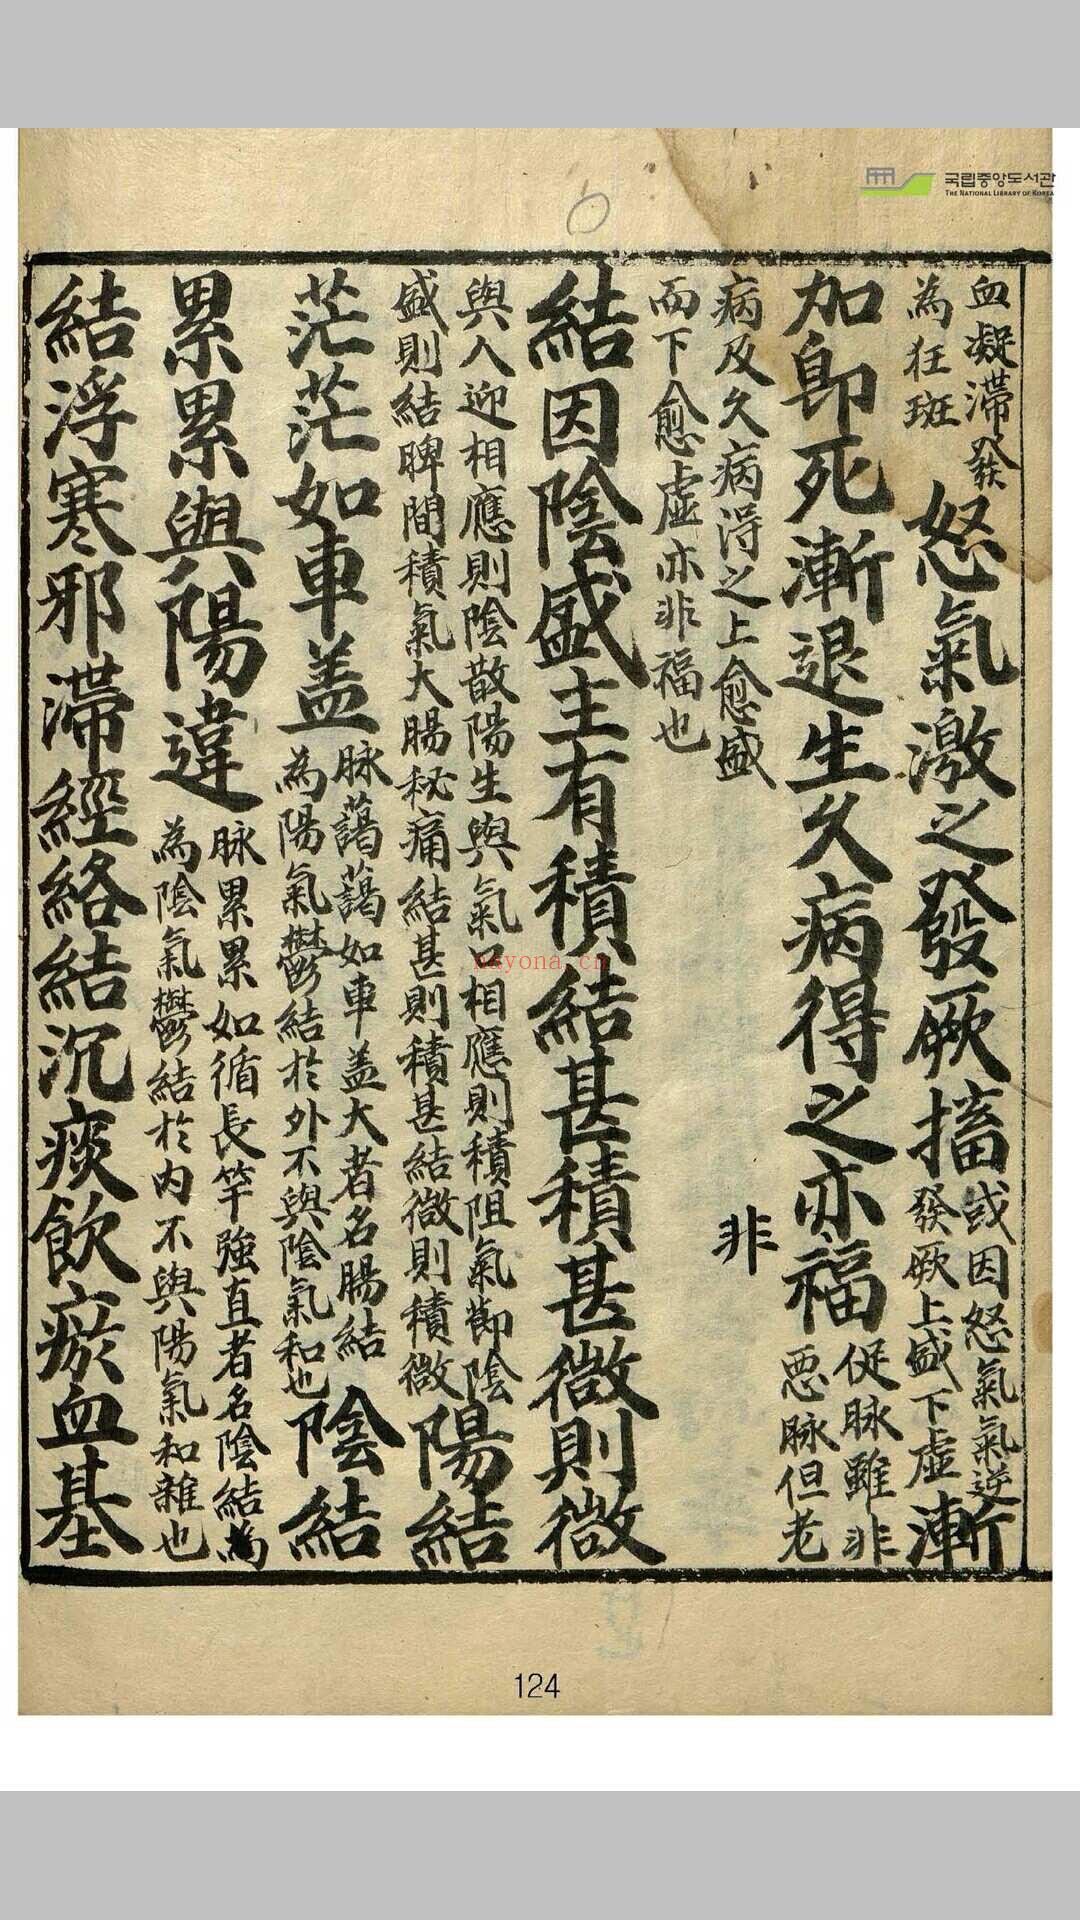 国립중앙도서관
THE NATIONAL LIBRARY OF KOREA
血凝滯發
為狂斑
怒氣激之發厥搐
或因怒氣氣逆
發厥上盛下虛
漸
加即死漸退生久病得之亦福
促脉雖非
惡脉但老
病及久病得之上愈盛
而下愈虛亦非福也
非
結因陰盛主有積結甚積甚微則微
與人迎相應則陰散陽生與氣口相應則積阻氣節陰
盛則結脾間積氣大腸秘痛結甚則積甚結微則積微
陽結
茫茫如車盖
脉藹藹如車盖大者名腸結
為陽氣鬱結於外不與陰氣和也
陰結
累累與陽違
脉累累如循長竿強直者名陰結為
為陰氣鬱結於內不與陽氣和雜也
結浮寒邪滯經絡結沉痰飲瘀血基
nayona.cn
124